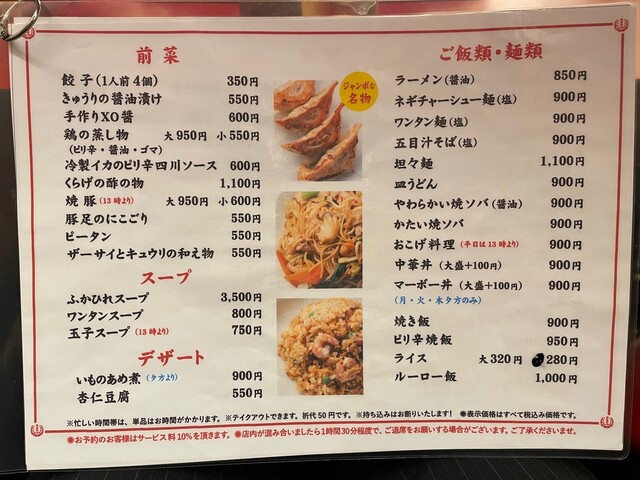 前菜
餃子(1人前4個) 350円
きゅうりの醤油漬け 550円
手作りXO醤 600円
鶏の蒸し物 大950円 小550円
(ピリ辛・醤油・ゴマ)
冷製イカのピリ辛四川ソース 600円
くらげの酢の物 1,100円
焼豚(13時より) 大950円 小600円
豚足のにこごり 550円
ピータン 550円
ザーサイとキュウリの和え物 550円
スープ
ふかひれスープ 3,500円
ワンタンスープ 800円
玉子スープ(13時より) 750円
デザート
いものあめ煮(夕方より) 900円
杏仁豆腐 550円
ジャンボな
名物
ご飯類・麺類
ラーメン(醤油) 850円
ネギチャーシュー麺(塩) 900円
ワンタン麺(塩) 900円
五目汁そば(塩) 900円
坦々麺 1,100円
皿うどん 900円
やわらかい焼ソバ(醤油) 900円
かたい焼ソバ 900円
おこげ料理(平日は13時より) 900円
中華丼(大盛+100円) 900円
マーボー丼(大盛+100円) 900円
(月・火・木夕方のみ)
焼き飯 900円
ピリ辛焼飯 950円
ライス 大320円 280円
ルーロー飯 1,000円
※忙しい時間帯は、単品はお時間がかかります。※テイクアウトできます。折代50円です。※持ち込みはお断りいたします! ◉表示価格はすべて税込み価格です。
◉お予約のお客様はサービス料10%を頂きます。◉店内が混み合いましたら1時間30分程度で、ご退席をお願いする場合がございます。ご了承くださいませ。